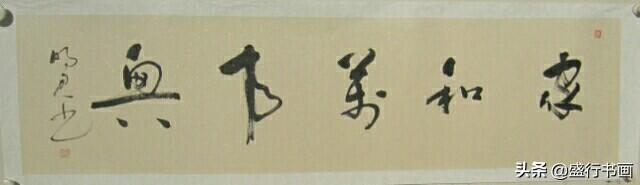 家和萬事興
头条 @盛行书画